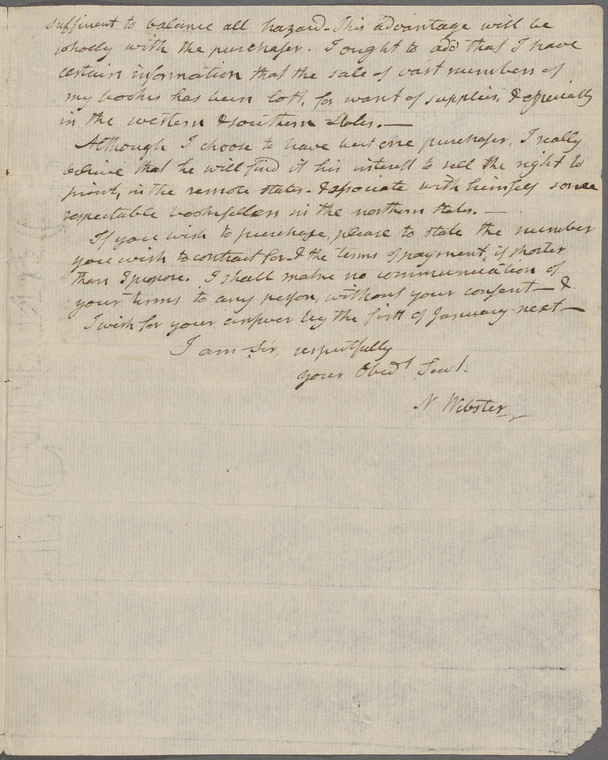 sufficient to balance all hazard. This advantage will be
wholly with the purchaser. I ought to add that I have
certain information that the sale of vast numbers of
my books has been lost, for want of supplies, & especially
in the western & southern states.—
Although I choose to have but one purchaser, I really
believe that he will find it his interest to sell the right to
print, in the remote states - & associate with himself some
respectable booksellers in the northern states. —
If you wish to purchase, please to state the number
you wish to contract for - & the terms of payment, if shorter
than I propose. I shall make no communication of
your terms to any person, without your consent — &
I wish for your answer by the first of January next —
I am Sir, respectfully
your Obedt Servt.
N Webster